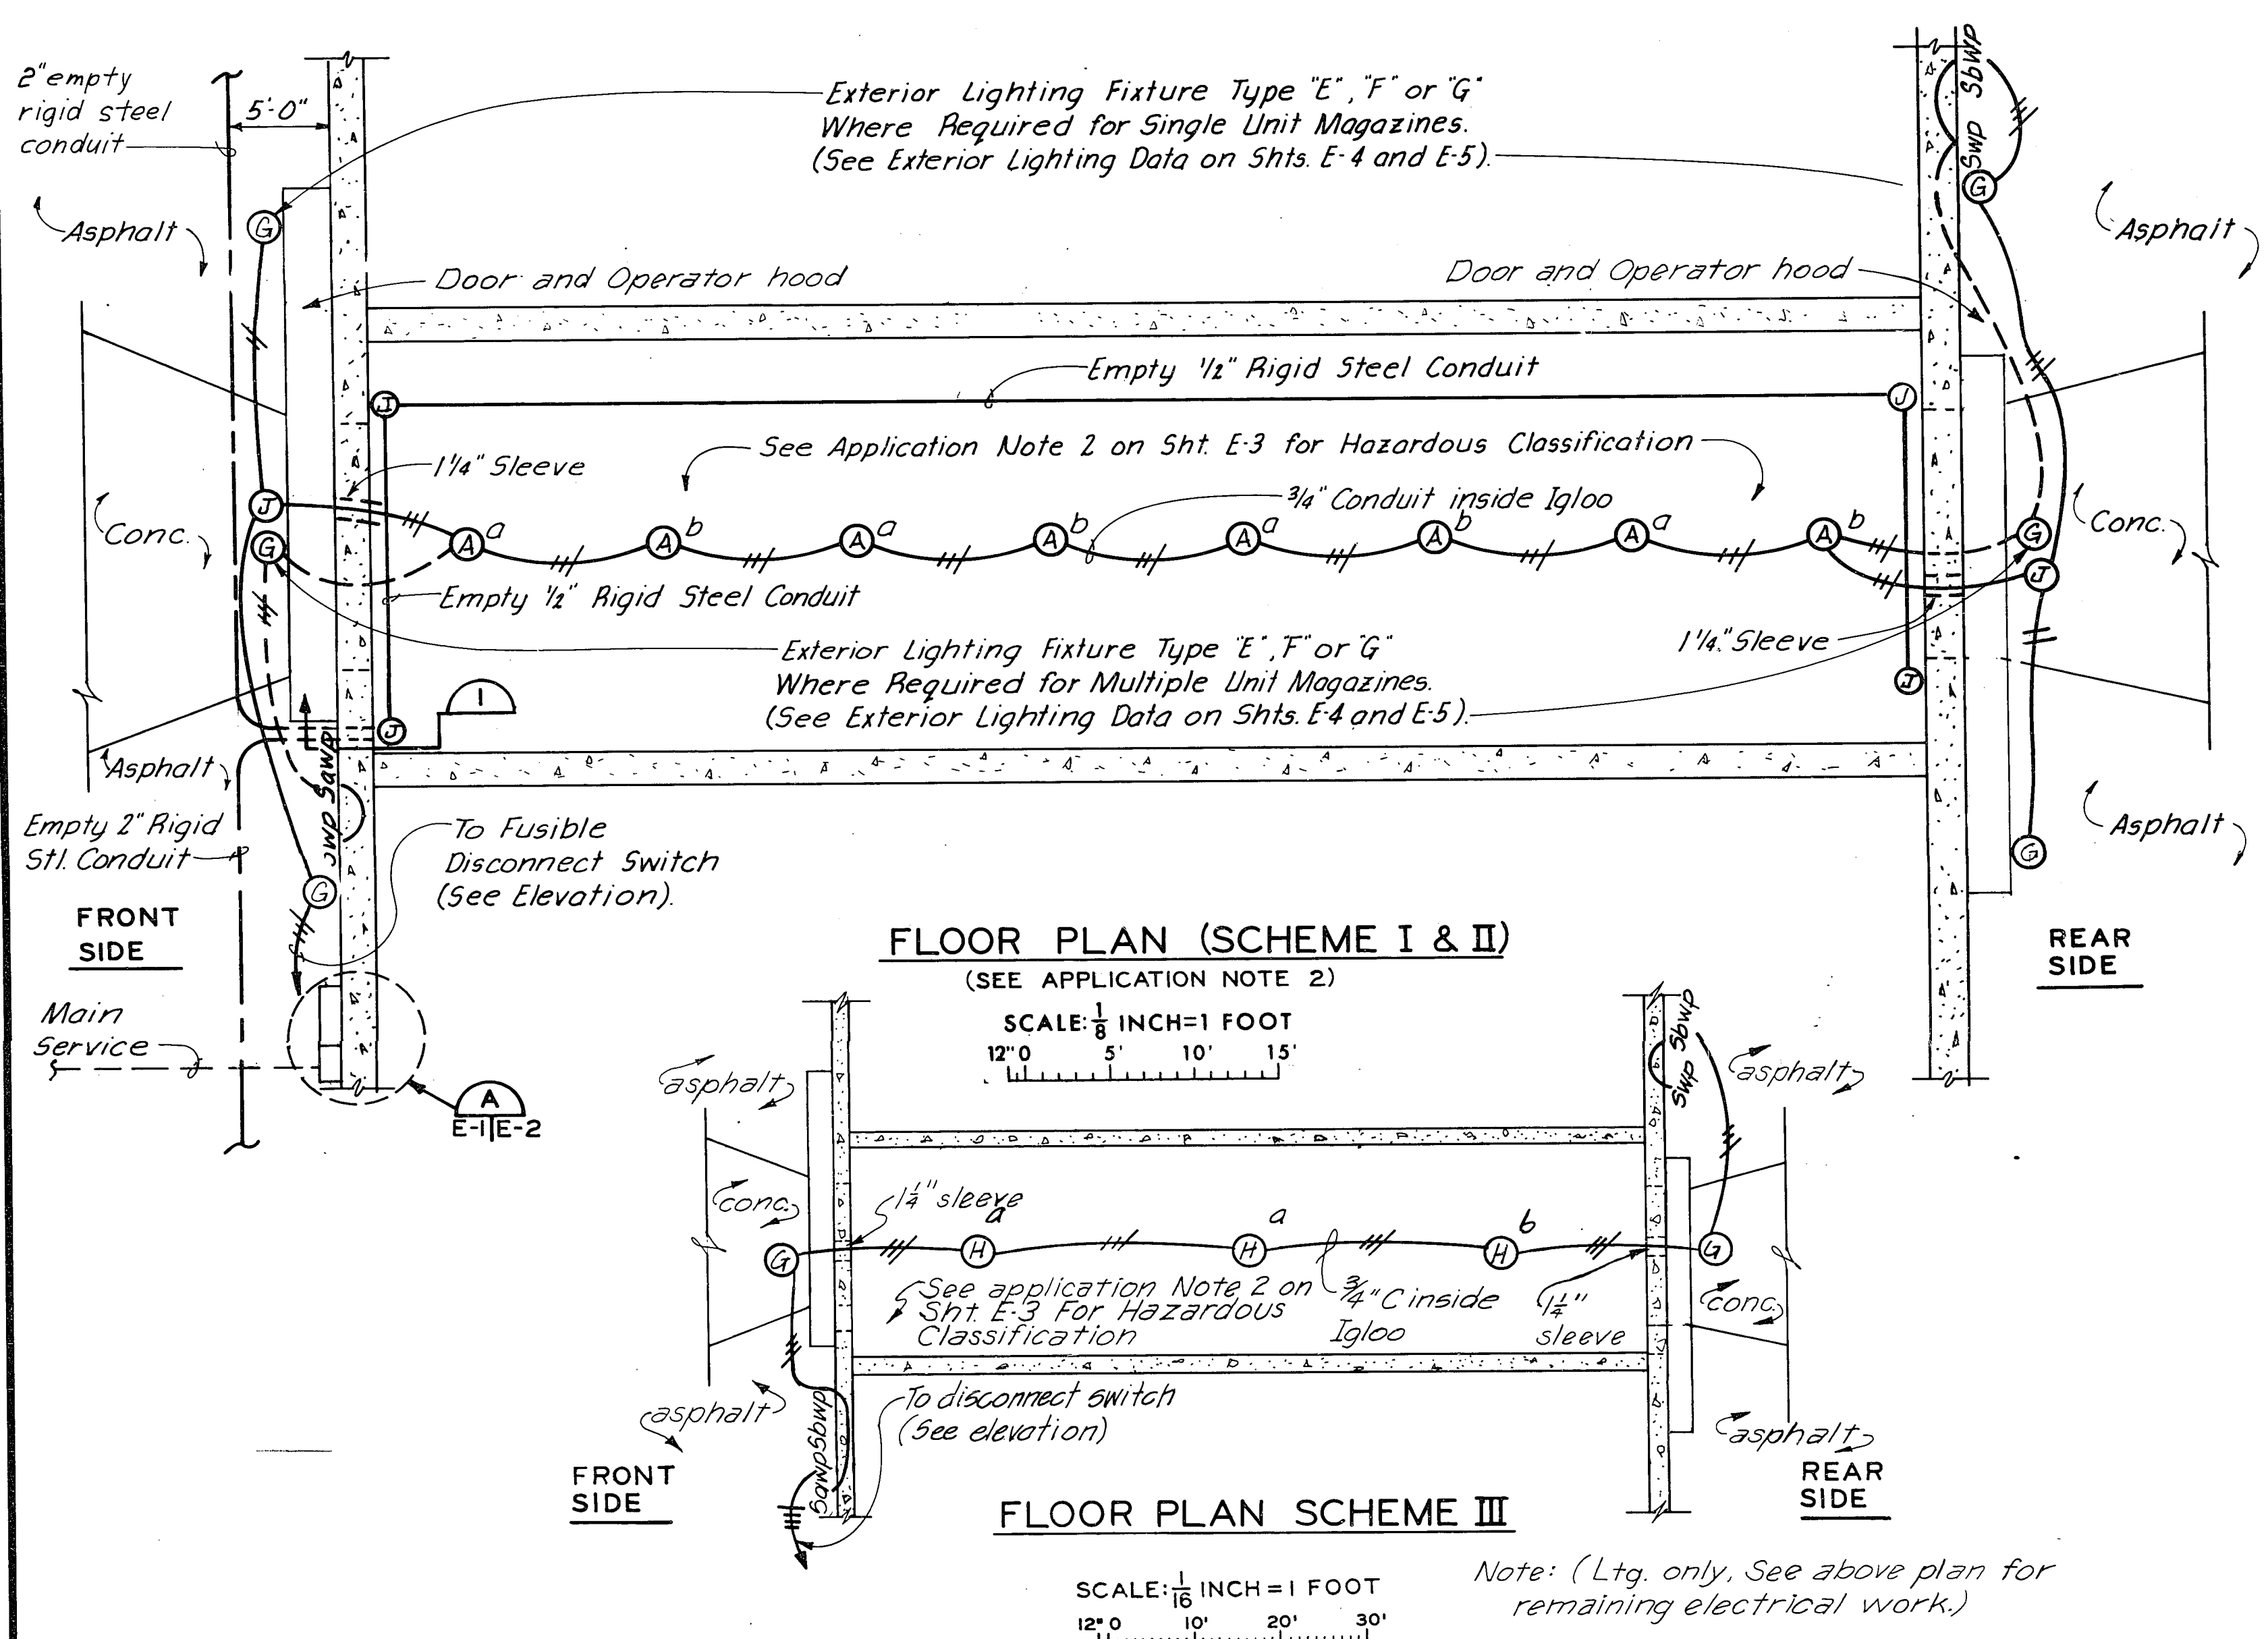 2" empty
rigid steel
conduit
5'-0"
Exterior Lighting Fixture Type "E", "F" or "G"
Where Required for Single Unit Magazines.
(See Exterior Lighting Data on Shts. E-4 and E-5).
Sbwp
Swp
G
G
Asphalt
Asphalt
Door and Operator hood
Door and Operator hood
Empty 1/2" Rigid Steel Conduit
J
J
See Application Note 2 on Sht. E-3 for Hazardous Classification
1 1/4" Sleeve
3/4" Conduit inside Igloo
J
Conc.
G
A a
A b
A a
A b
A a
A b
A a
A b
G
J
Conc.
Empty 1/2" Rigid Steel Conduit
Exterior Lighting Fixture Type "E", "F" or "G"
Where Required for Multiple Unit Magazines.
(See Exterior Lighting Data on Shts. E-4 and E-5).
1 1/4" Sleeve
J
J
1
Asphalt
Sawp
Empty 2" Rigid
Stl. Conduit
To Fusible
Disconnect Switch
(See Elevation).
G
G
Asphalt
FRONT
SIDE
REAR
SIDE
FLOOR PLAN (SCHEME I & II)
(SEE APPLICATION NOTE 2)
SCALE: 1/8 INCH=1 FOOT
12" 0 5' 10' 15'
Main
Service
A
E-1 E-2
asphalt
Sbwp
Swp
asphalt
conc.
1 1/4" sleeve
G
H a
H a
H b
G
See application Note 2 on
Sht. E-3 For Hazardous
Classification
3/4" C inside
Igloo
1 1/4"
sleeve
conc.
asphalt
To disconnect switch
(See elevation)
asphalt
FRONT
SIDE
REAR
SIDE
FLOOR PLAN SCHEME III
SCALE: 1/16 INCH = 1 FOOT
12" 0 10' 20' 30'
Note: (Ltg. only, See above plan for
remaining electrical work.)